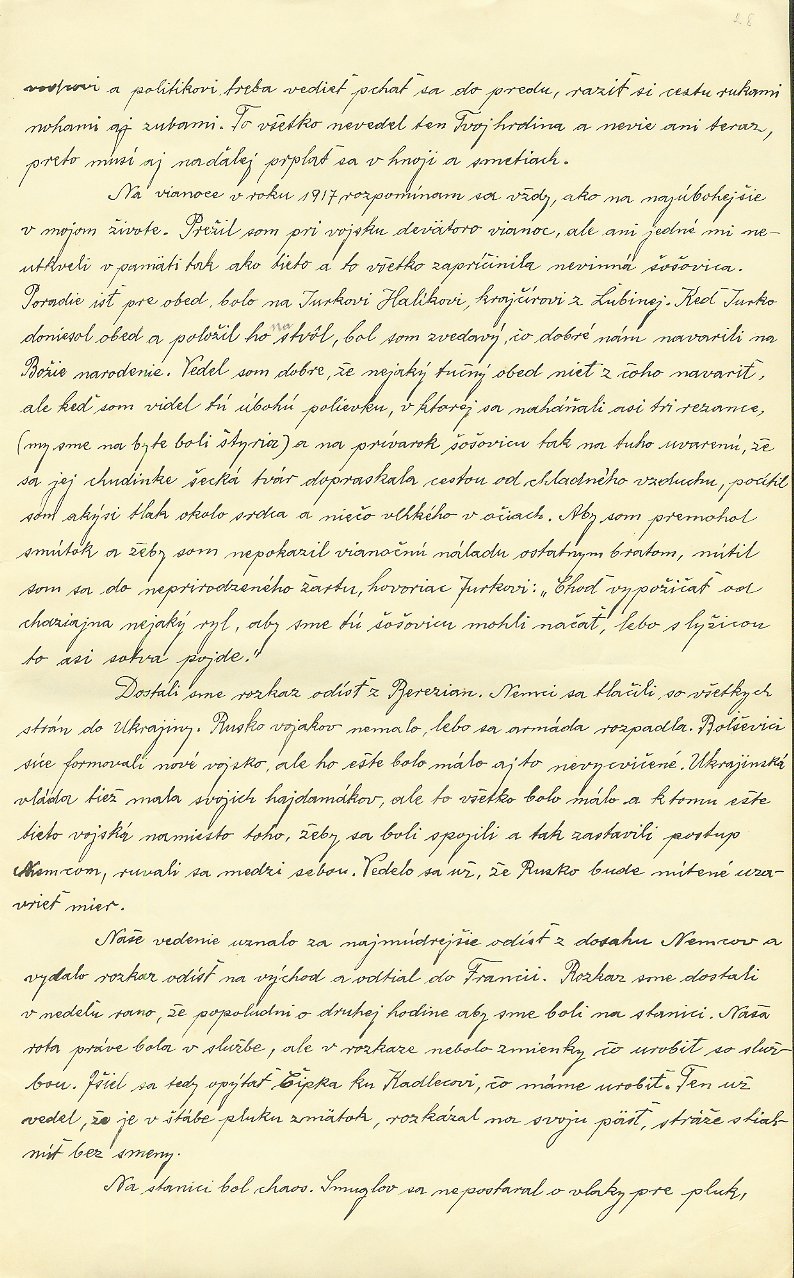 28
vodcovi a politikovi treba vedieť pchať sa do predu, raziť si cestu rukami
nohami aj zubami. To všetko nevedel ten Tvoj hrdina a nevie ani teraz,
preto musí aj naďalej prplať sa v hnoji a smetiach.
Na vianoce v roku 1917, rozpomínam sa vždy, ako na najúbohejšie
v mojom živote. Prežil som pri vojsku devätoro vianoc, ale ani jedné mi ne-
utkveli v pamäti tak ako tieto a to všetko zapríčinila nevinná šošovica.
Poradie ísť pre obed, bolo na Jurkovi Halíkovi, krajčírovi z Lubinej. Keď Jurko
doniesol obed a položil ho na stvôl, bol som zvedavý, čo dobré nám navarili na
Božie narodenie. Vedel som dobre, že nejaký tučný obed niet z čoho navariť,
ale keď som videl tú úbohú polievku, v ktorej sa naháňali asi tri rezance,
(my sme na byte boli štyria) a na prívarok šošovicu tak na tuho uvarenú, že
sa jej chudinke šecká tvár dopraskala cestou od chladného vzduchu, pocítil
som akýsi tlak okolo srdca a niečo vlhkého v očiach. Aby som premohol
smútok a žeby som nepokazil vianočnú náladu ostatnym bratom, nútil
som sa do neprirodzeného žartu, hovoriac Jurkovi: „Choď vypožičať od
chaziajna nejaký ryl, aby sme tú šošovicu mohli načať, lebo s lyžicou
to asi sotva pojde."
Dostali sme rozkaz odísť z Berezian. Nemci sa tlačili, so všetkych
strán do Ukrajiny. Rusko vojakov nemalo, lebo sa armáda rozpadla. Bolševici
síce formovali nové vojsko, ale ho ešte bolo málo aj to nevycvičené. Ukrajinská
vláda tiež mala svojich hajdamákov, ale to všetko bolo málo a k tomu ešte
tieto vojská namiesto toho, žeby sa boli spojili a tak zastavili postup
Nemcom, ruvali sa medzi sebou. Vedelo sa už, že Rusko bude nútené uza-
vrieť mier.
Naše vedenie uznalo za najmúdrejšie odísť z dosahu Nemcov a
vydalo rozkaz odísť na východ a odtial do Francii. Rozkaz sme dostali
v nedeľu rano, že popoludní o druhej hodine aby sme boli na stanici. Naša
rota práve bola v službe, ale v rozkaze nebolo zmienky čo urobiť so služ-
bou. Išiel sa tedy opýtať Čipka ku Kadlecovi, čo máme urobiť. Ten už
vedel, že je v štábe pluku zmätok, rozkázal na svoju päsť, stráže stiah-
núť bez smeny.
Na stanici bol chaos. Smuglov sa nepostaral o vlaky pre pluk,